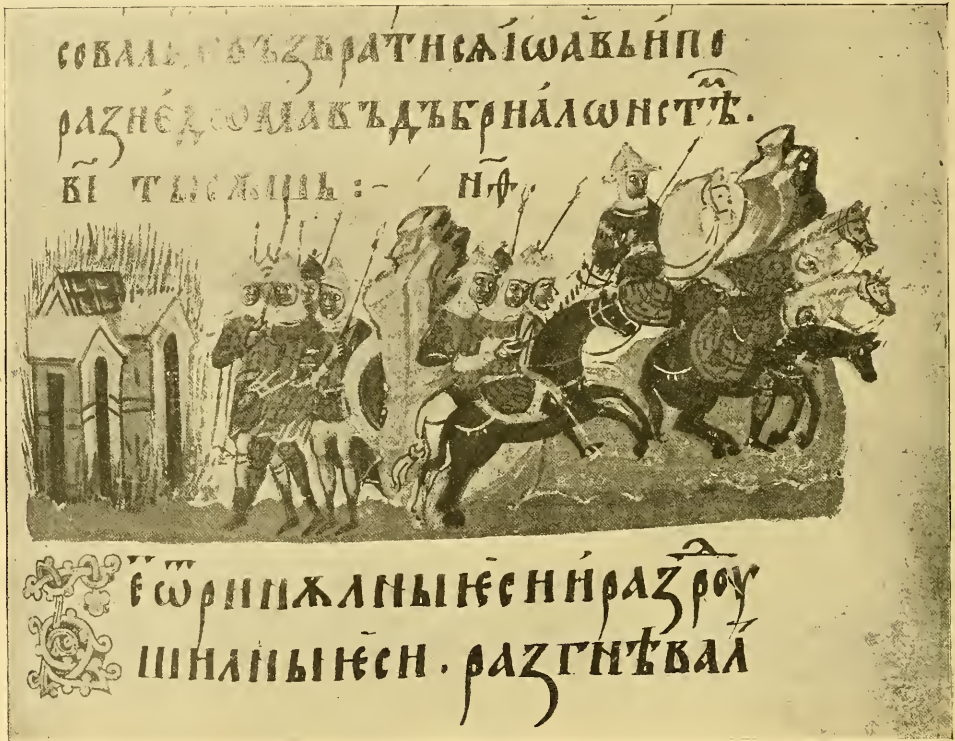 совалъ възврати сѧ іѡа́вь и́ по
рази е́дѡма въ дъбри а́лѡнстѣⷨ.
в҃і тысѫщь :- н҃ѳ.
Б҃е ѿринѫл ны ѥси и́ разⷣроу
шил ны ѥси . разгнѣвал